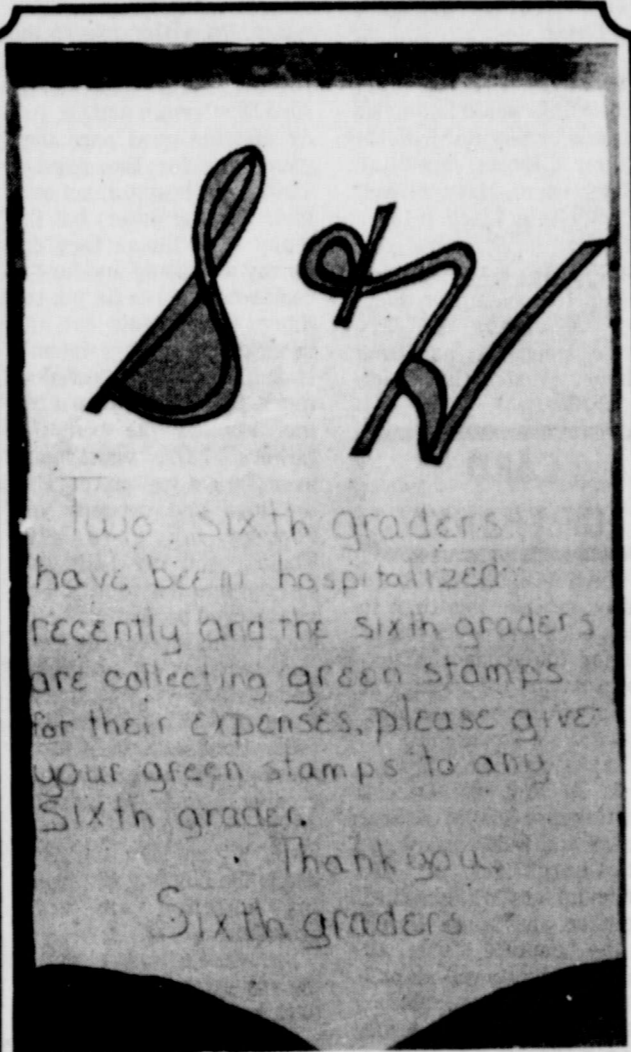 S & H
Two sixth graders
have been hospitalized
recently and the sixth graders
are collecting green stamps
for their expenses. please give
your green stamps to any
Sixth grader.
Thank you.
Sixth graders